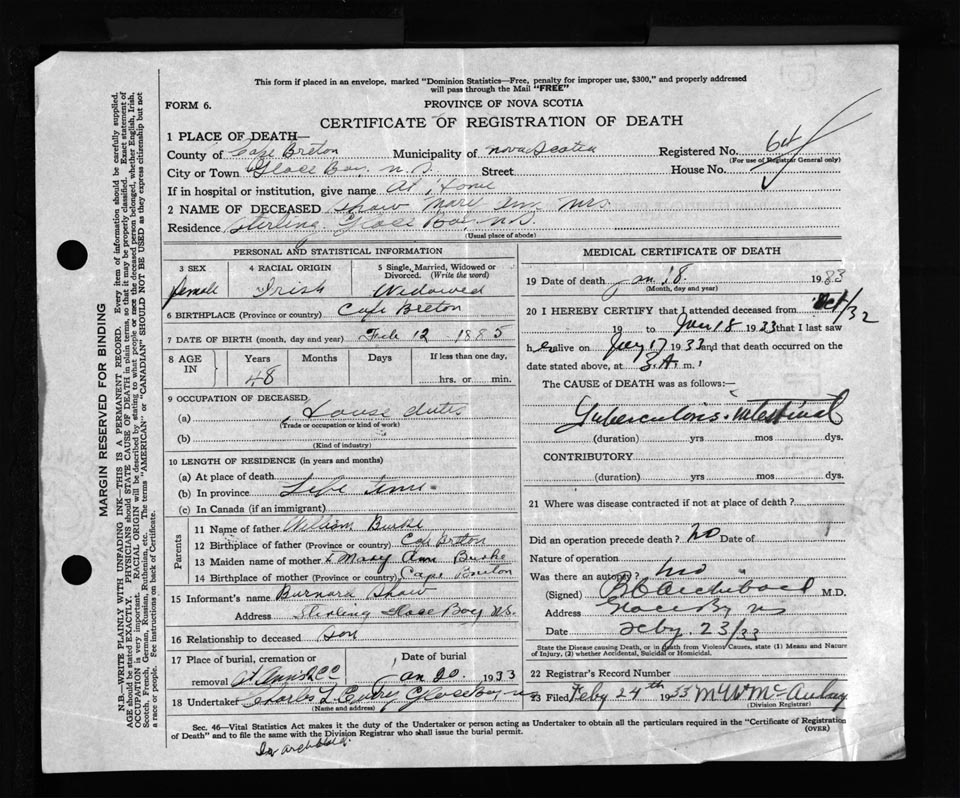 This form if placed in an envelope, marked "Dominion Statistics—Free, penalty for improper use, $300," and properly addressed
will pass through the Mail "FREE"
FORM 6.
PROVINCE OF NOVA SCOTIA
CERTIFICATE OF REGISTRATION OF DEATH
1 PLACE OF DEATH—
County of Cape Breton Municipality of Nova Scotia Registered No. 64
(For use of Registrar General only)
City or Town Glace Bay. N.S. Street House No.
If in hospital or institution, give name At Home
2 NAME OF DECEASED Shaw Mrs
Residence Sterling Glace Bay, N.S.
(Usual place of abode)
PERSONAL AND STATISTICAL INFORMATION
3 SEX
female
4 RACIAL ORIGIN
Irish
5 Single, Married, Widowed or
Divorced. (Write the word)
Widowed
6 BIRTHPLACE (Province or country) Cape Breton
7 DATE OF BIRTH (month, day and year) Feb 12 1885
8 AGE
IN
Years
48
Months
Days
If less than one day,
hrs. or min.
9 OCCUPATION OF DECEASED
(a) House duties
(Trade or occupation or kind of work)
(b)
(Kind of industry)
10 LENGTH OF RESIDENCE (in years and months)
(a) At place of death
(b) In province Life time
(c) In Canada (if an immigrant)
Parents
11 Name of father William Burke
12 Birthplace of father (Province or country) Cape Breton
13 Maiden name of mother Mary Ann Burke
14 Birthplace of mother (Province or country) Cape Breton
15 Informant's name Burnard Shaw
Address Sterling Glace Bay N.S.
16 Relationship to deceased Son
17 Place of burial, cremation or
removal St Anns R C C
Date of burial
Jan 20. 1933
18 Undertaker Charles L Curry Glace Bay
(Name and address)
MEDICAL CERTIFICATE OF DEATH
19 Date of death Jan 18 1933
(Month, day and year)
20 I HEREBY CERTIFY that I attended deceased from Oct/32
19 to Jan 18 1933 that I last saw
h er alive on Jany 17 1933 and that death occurred on the
date stated above, at 3.A. m.
The CAUSE of DEATH was as follows:—
Tuberculosis - Intestinal
(duration) yrs mos dys.
CONTRIBUTORY
(duration) yrs mos dys.
21 Where was disease contracted if not at place of death?
Did an operation precede death? no Date of
Nature of operation
Was there an autopsy? no
(Signed) Archibald M.D.
Address Glace Bay NS
Date Feby. 23/33
State the Disease causing Death, or in death from Violent Causes, state (1) Means and Nature
of Injury, (2) whether Accidental, Suicidal or Homicidal.
22 Registrar's Record Number
23 Filed Feby 24th 1933 McAulay
(Division Registrar)
Sec. 46—Vital Statistics Act makes it the duty of the Undertaker or person acting as Undertaker to obtain all the particulars required in the "Certificate of Registration
of Death" and to file the same with the Division Registrar who shall issue the burial permit.
(OVER)
Dr archibald.
MARGIN RESERVED FOR BINDING
N.B.—WRITE PLAINLY WITH UNFADING INK—THIS IS A PERMANENT RECORD. Every item of information should be carefully supplied.
AGE should be stated EXACTLY. PHYSICIANS should STATE CAUSE OF DEATH in plain terms, so that it may be properly classified. Exact statement of
OCCUPATION is very important. RACIAL ORIGIN will be described by stating to what people or race the deceased person belonged, whether English, Irish,
Scotch, French, German, Russian, Ruthenian, etc. The terms "AMERICAN" or "CANADIAN" SHOULD NOT BE USED as they express citizenship but not
a race or people. See instructions on back of Certificate.